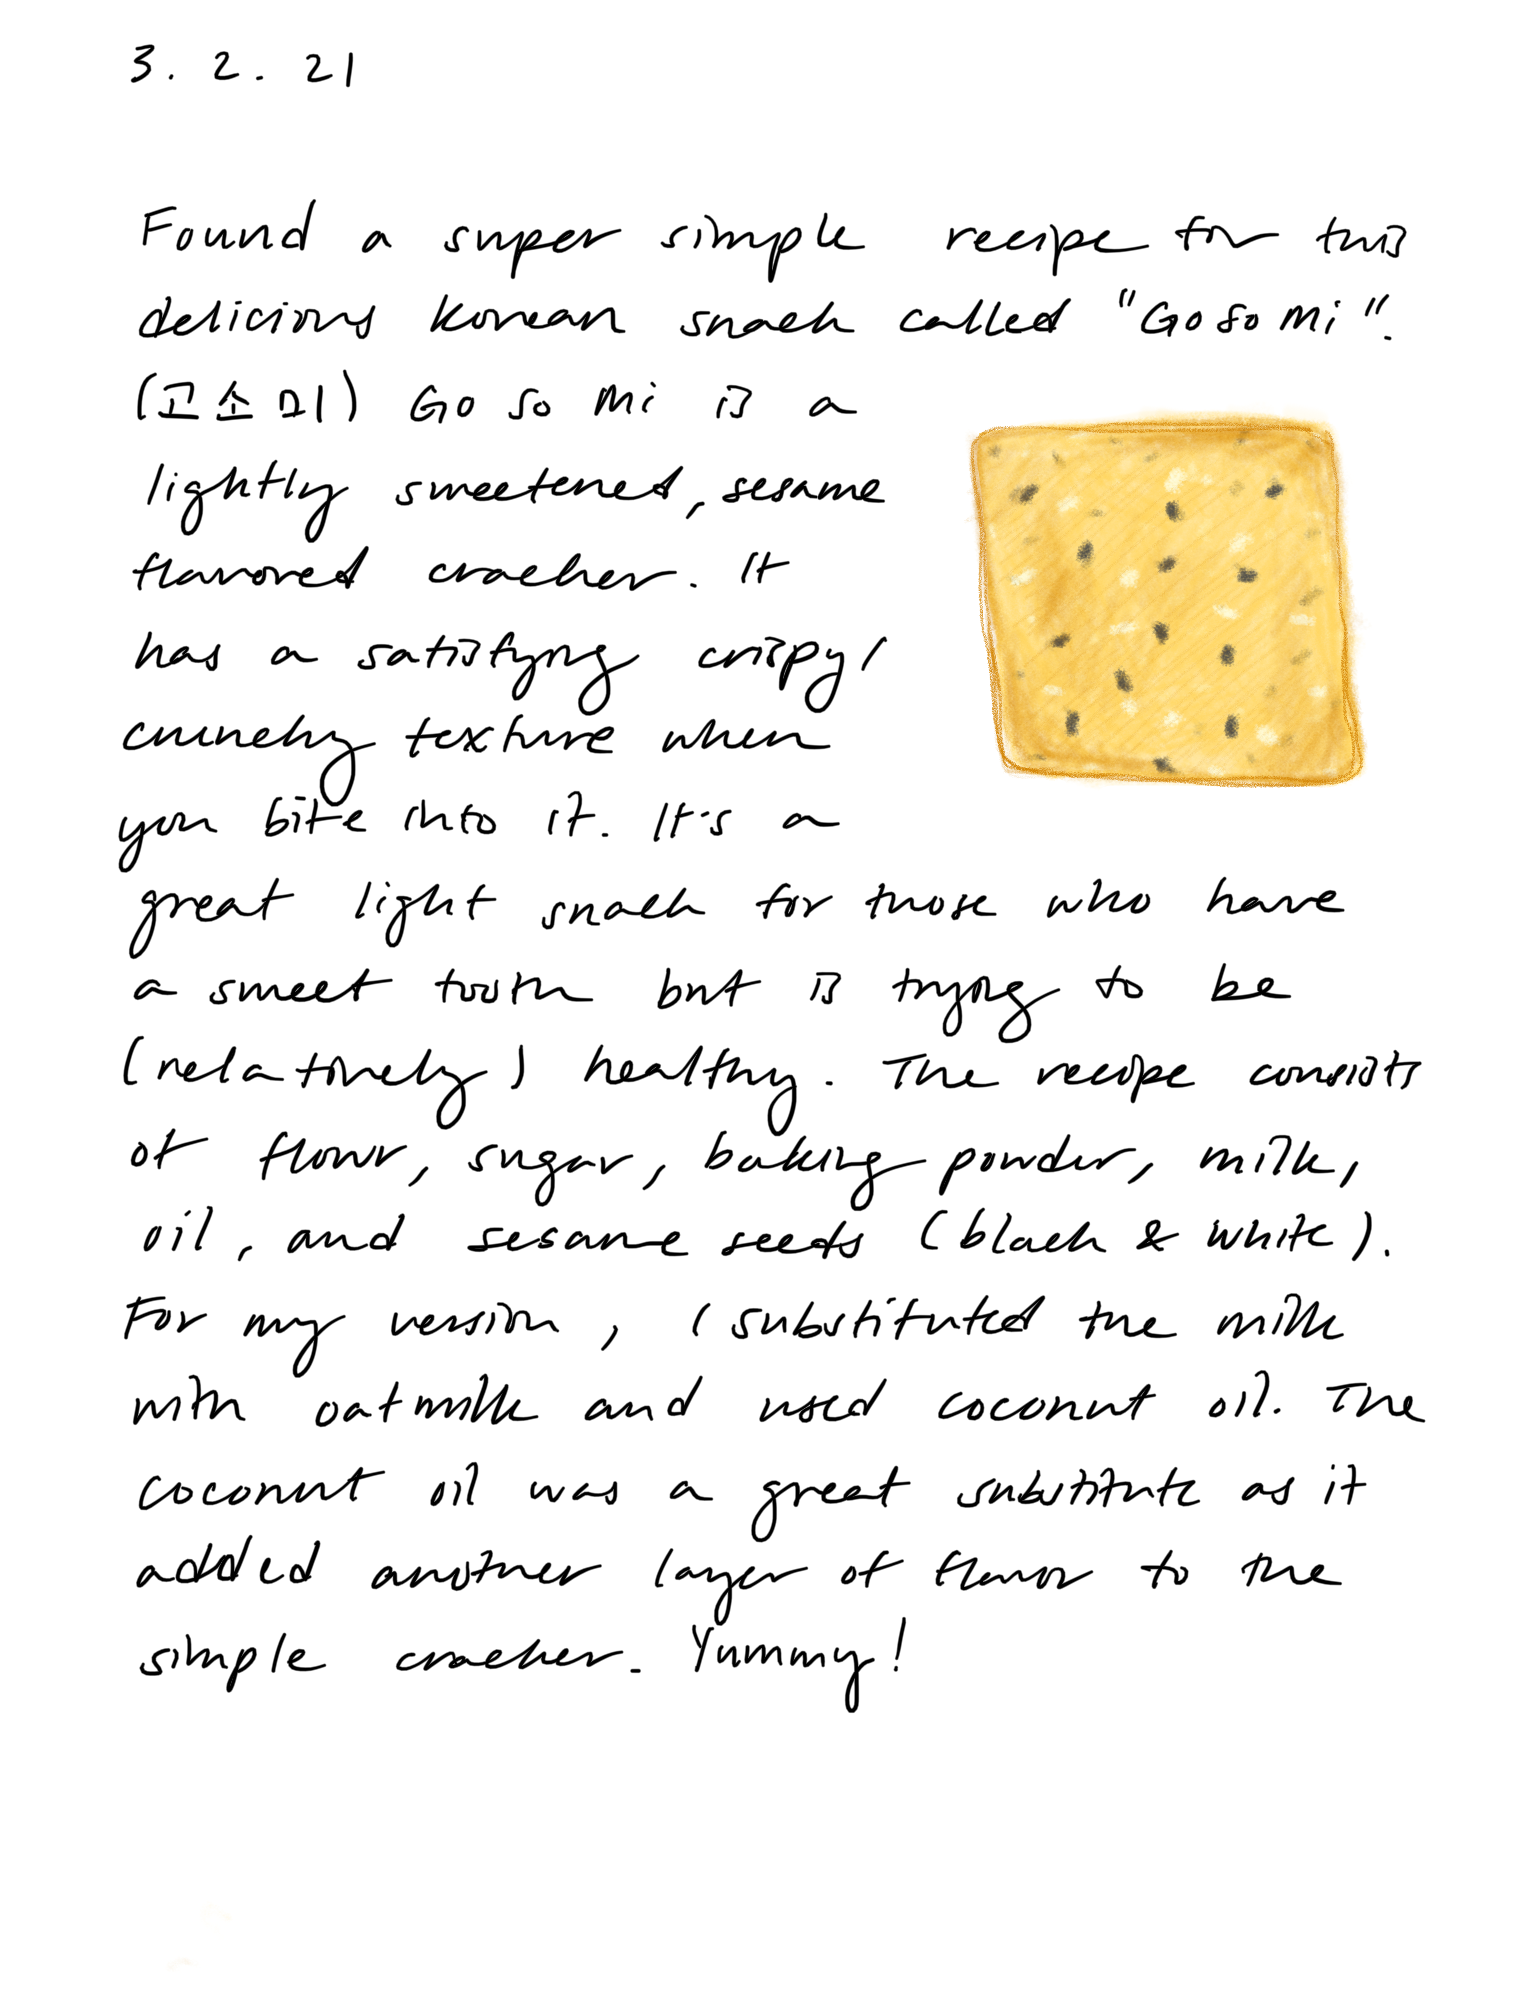 3. 2. 21
Found a super simple recipe for this
delicious Korean snack called "Go So Mi".
(고소미) Go So Mi is a
lightly sweetened, sesame
flavored cracker. It
has a satisfying crispy/
crunchy texture when
you bite into it. It's a
great light snack for those who have
a sweet tooth but is trying to be
(relatively) healthy. The recipe consists
of flour, sugar, baking powder, milk,
oil, and sesame seeds (black & white).
For my version, I substituted the milk
with oatmilk and used coconut oil. The
coconut oil was a great substitute as it
added another layer of flavor to the
simple cracker. Yummy!